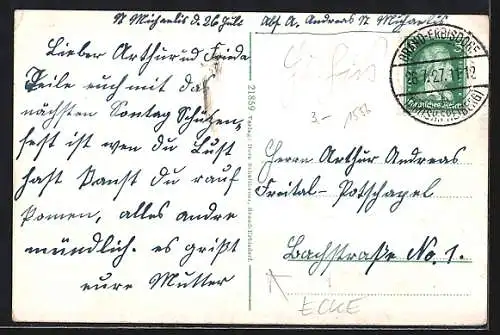 St Michaelis d. 26 Juli
Abs A. Andreas St Michaelis
Lieber Arthur u d Frieda
Teile euch mit das
nächsten Sontag Schützen-
fest ist wen du Lust
hast kanst du rauf
komen, alles andre
mündlich. es grüßt
eure Mutter
21859
BRAND-ERBISDORF
26.7.27.11-12
Herrn Arthur Andreas
Freital-Potschapel
Bachstraße No. 1.
3-
ECKE